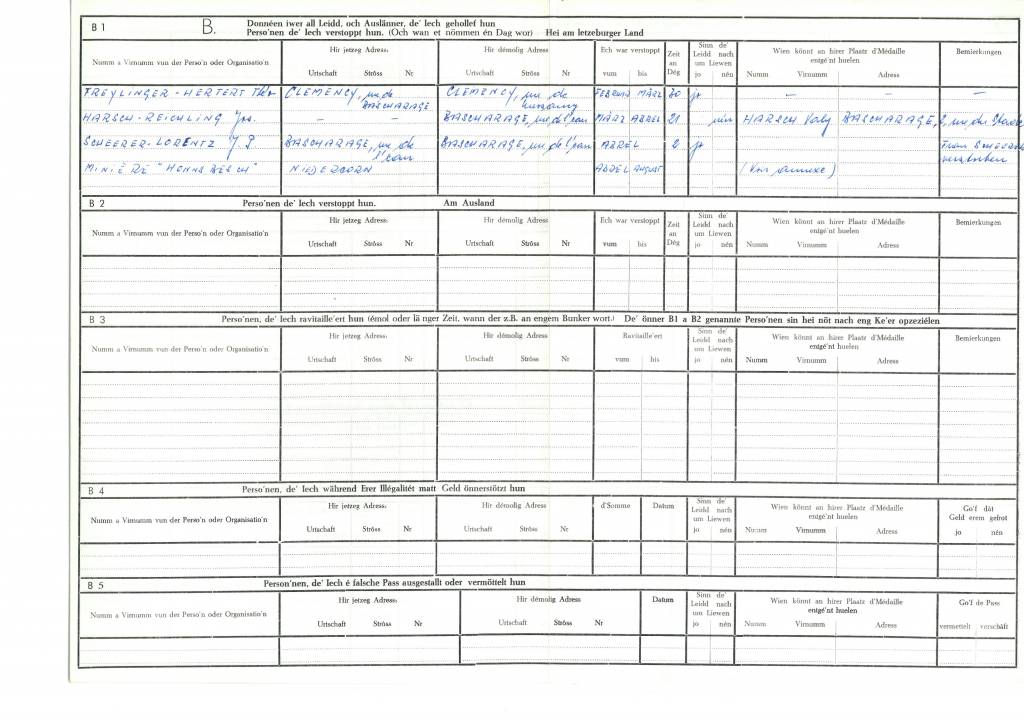 B 1 B. Donnéen iwer all Leidd, och Auslänner, de' Iech gehollef hun
Perso'nen de' Iech verstoppt hun. (Och wan et nömmen én Dag wor) Hei am letzeburger Land
Numm a Virnumm vun der Perso'n oder Organisatio'n
Hir jetzeg Adress:
Urtschaft Ströss Nr
Hir démolig Adress
Urtschaft Ströss Nr
Ech war verstoppt
vum bis
Zeit an Dég
Sinn de' Leidd nach um Liewen
jo nén
Wien könnt an hirer Plaatz d'Médaille entgé'nt huelen
Numm Virnumm Adress
Bemierkungen
FREYLINGER-HERTERT CLEMENCY, rue de BASCHARAGE CLEMENCY, rue de FEBRUAR MÄRZ 20 jo — — —
HARSCH-REICHLING Jos. — — BASCHARAGE, rue de l'eau MÄRZ ABREL 21 nén HARSCH Valy BASCHARAGE, rue du Stade
SCHEERER-LORENTZ J.P. BASCHARAGE, rue de l'eau BASCHARAGE, rue de l'eau ABREL 2 jo Frau
MINIÈRE "HONNS BËSCH" NIEDERCORN ABREL AUGUST (Voir annexe)
B 2 Perso'nen de' Iech verstoppt hun. Am Ausland
Numm a Virnumm vun der Perso'n oder Organisatio'n
Hir jetzeg Adress:
Urtschaft Ströss Nr
Hir démolig Adress
Urtschaft Ströss Nr
Ech war verstoppt
vum bis
Zeit an Dég
Sinn de' Leidd nach um Liewen
jo nén
Wien könnt an hirer Plaatz d'Médaille entgé'nt huelen
Numm Virnumm Adress
Bemierkungen
B 3 Perso'nen, de' Iech ravitaille'ert hun (émol oder lä nger Zeit, wann der z.B. an engem Bunker wort.) De' önner B1 a B2 genannte Perso'nen sin hei nöt nach eng Ke'er opzeziélen
Numm a Virnumm vun der Perso'n oder Organisatio'n
Hir jetzeg Adress:
Urtschaft Ströss Nr
Hir démolig Adress
Urtschaft Ströss Nr
Ravitaille'ert
vum bis
Sinn de' Leidd nach um Liewen
jo nén
Wien könnt an hirer Plaatz d'Médaille entgé'nt huelen
Numm Virnumm Adress
Bemierkungen
B 4 Perso'nen, de' Iech während Erer Illégalitét matt Geld önnerstötzt hun
Numm a Virnumm vun der Perso'n oder Organisatio'n
Hir jetzeg Adress:
Urtschaft Ströss Nr
Hir démolig Adress
Urtschaft Ströss Nr
d'Somme
Datum
Sinn de' Leidd nach um Liewen
jo nén
Wien könnt an hirer Plaatz d'Médaille entgé'nt huelen
Numm Virnumm Adress
Go'f dât Geld erem gefrot
jo nén
B 5 Person'nen, de' Iech é falsche Pass ausgestallt oder vermöttelt hun
Numm a Virnumm vun der Perso'n oder Organisatio'n
Hir jetzeg Adress:
Urtschaft Ströss Nr
Hir démolig Adress
Urtschaft Ströss Nr
Datum
Sinn de' Leidd nach um Liewen
jo nén
Wien könnt an hirer Plaatz d'Médaille entgé'nt huelen
Numm Virnumm Adress
Go'f de Pass
vermettelt verschâft